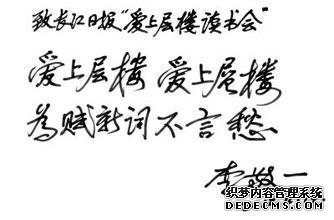 致长江日报“爱上层楼读书会”
爱上层楼 爱上层楼
為赋新词不言愁
李敬一
织梦内容管理系统
DEDECMS.COM